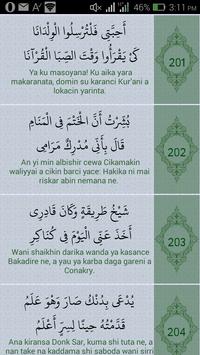 46% 3:11 PM
أَحِبَّتِي فَلْتُرْسِلُوا الْوِلْدَانَا
كَيْ يَقْرَأُوا وَقْتَ الصِّبَا الْقُرْآنَا
201
Ya ku masoyana! Ku aika yara
makaranata, domin su karanci Kur'ani a
lokacin yarinta.
بُشِّرْتُ أَنَّ الْخَتْمَ فِي الْمَنَامِ
قَالَ بِأَنِّي مُدْرِكٌ مَرَامِي
202
An yi min albishir cewa Cikamakin
waliyyai a cikin barci yace: Hakika ni mai
riskar abin nemana ne.
شَيْخُ طَرِيقَةٍ وَكَانَ قَادِرِي
أَخَذَ عَنِّي الْيَوْمَ فِي كُنَاكِرِ
203
Wani shaikhin darika wanda ya kasance
Bakadire ne, a yau ya karba daga gareni a
Conakry.
يُدْعَى بِدُنْكَ صَارَ وَهْوَ عَلَمُ
قَدَّمْتُهُ حِينًا لِسِرٍّ أَعْلَمُ
204
Ana kiransa Donk Sar, kuma shi tuta ne, a
nan take na kaddama da shi saboda wani sirri